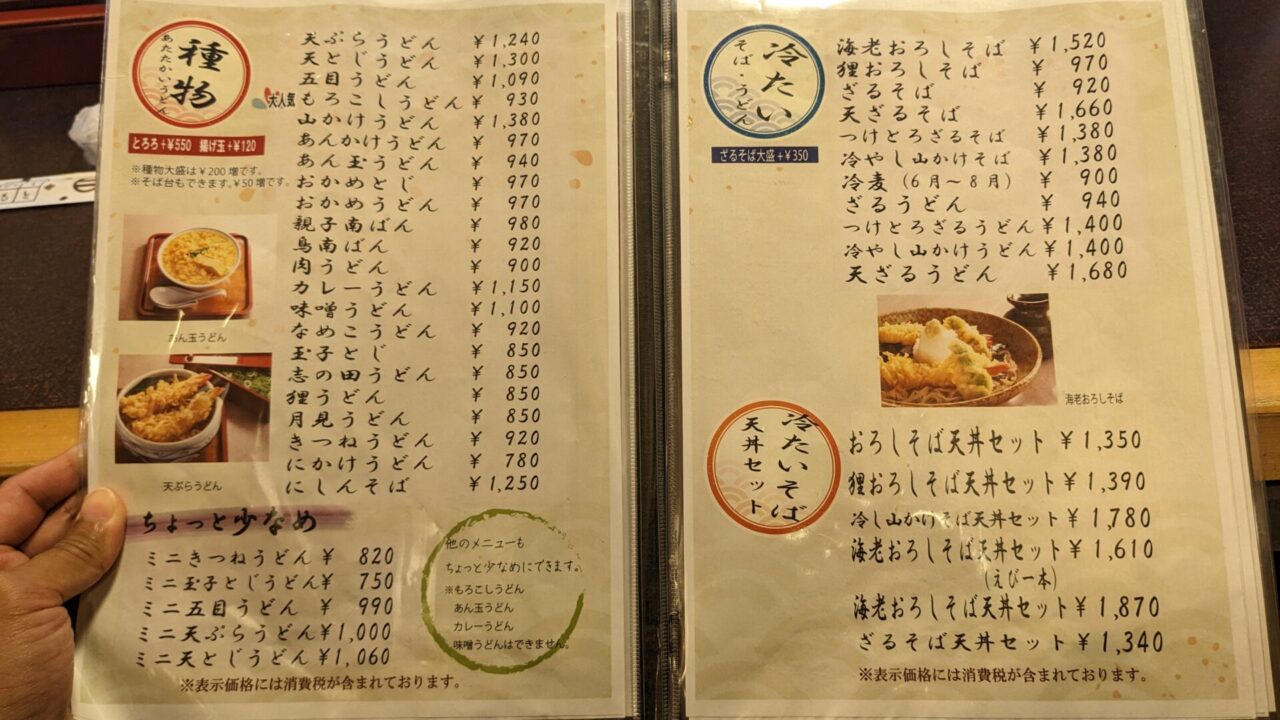 種物
あたたかいうどん
とろろ+¥550 揚げ玉+¥120
※種物大盛は¥200増です。
※そば台もできます。¥50増です。
天ぷらうどん ¥1,240
天とじうどん ¥1,300
五目うどん ¥1,090
大人気 もろこしうどん ¥ 930
山かけうどん ¥1,380
あんかけうどん ¥ 970
あん玉うどん ¥ 940
おかめとじ ¥ 970
おかめうどん ¥ 970
親子南ばん ¥ 980
鳥南ばん ¥ 920
肉うどん ¥ 900
カレーうどん ¥1,150
味噌うどん ¥1,100
なめこうどん ¥ 920
玉子とじ ¥ 850
志の田うどん ¥ 850
狸うどん ¥ 850
月見うどん ¥ 850
きつねうどん ¥ 920
にかけうどん ¥ 780
にしんそば ¥1,250
あん玉うどん
天ぷらうどん
ちょっと少なめ
ミニきつねうどん ¥ 820
ミニ玉子とじうどん¥ 750
ミニ五目うどん ¥ 990
ミニ天ぷらうどん¥1,000
ミニ天とじうどん¥1,060
他のメニューも
ちょっと少なめにできます。
※もろこしうどん
あん玉うどん
カレーうどん
味噌うどんはできません。
※表示価格には消費税が含まれております。
冷たい
そば・うどん
ざるそば大盛+¥350
海老おろしそば ¥1,520
狸おろしそば ¥ 970
ざるそば ¥ 920
天ざるそば ¥1,660
つけとろざるそば ¥1,380
冷やし山かけそば ¥1,380
冷麦(6月〜8月) ¥ 900
ざるうどん ¥ 940
つけとろざるうどん¥1,400
冷やし山かけうどん¥1,400
天ざるうどん ¥1,680
海老おろしそば
冷たいそば
天丼セット
おろしそば天丼セット ¥1,350
狸おろしそば天丼セット¥1,390
冷し山かけそば天丼セット¥1,780
海老おろしそば天丼セット¥1,610
(えび一本)
海老おろしそば天丼セット¥1,870
ざるそば天丼セット ¥1,340
※表示価格には消費税が含まれております。